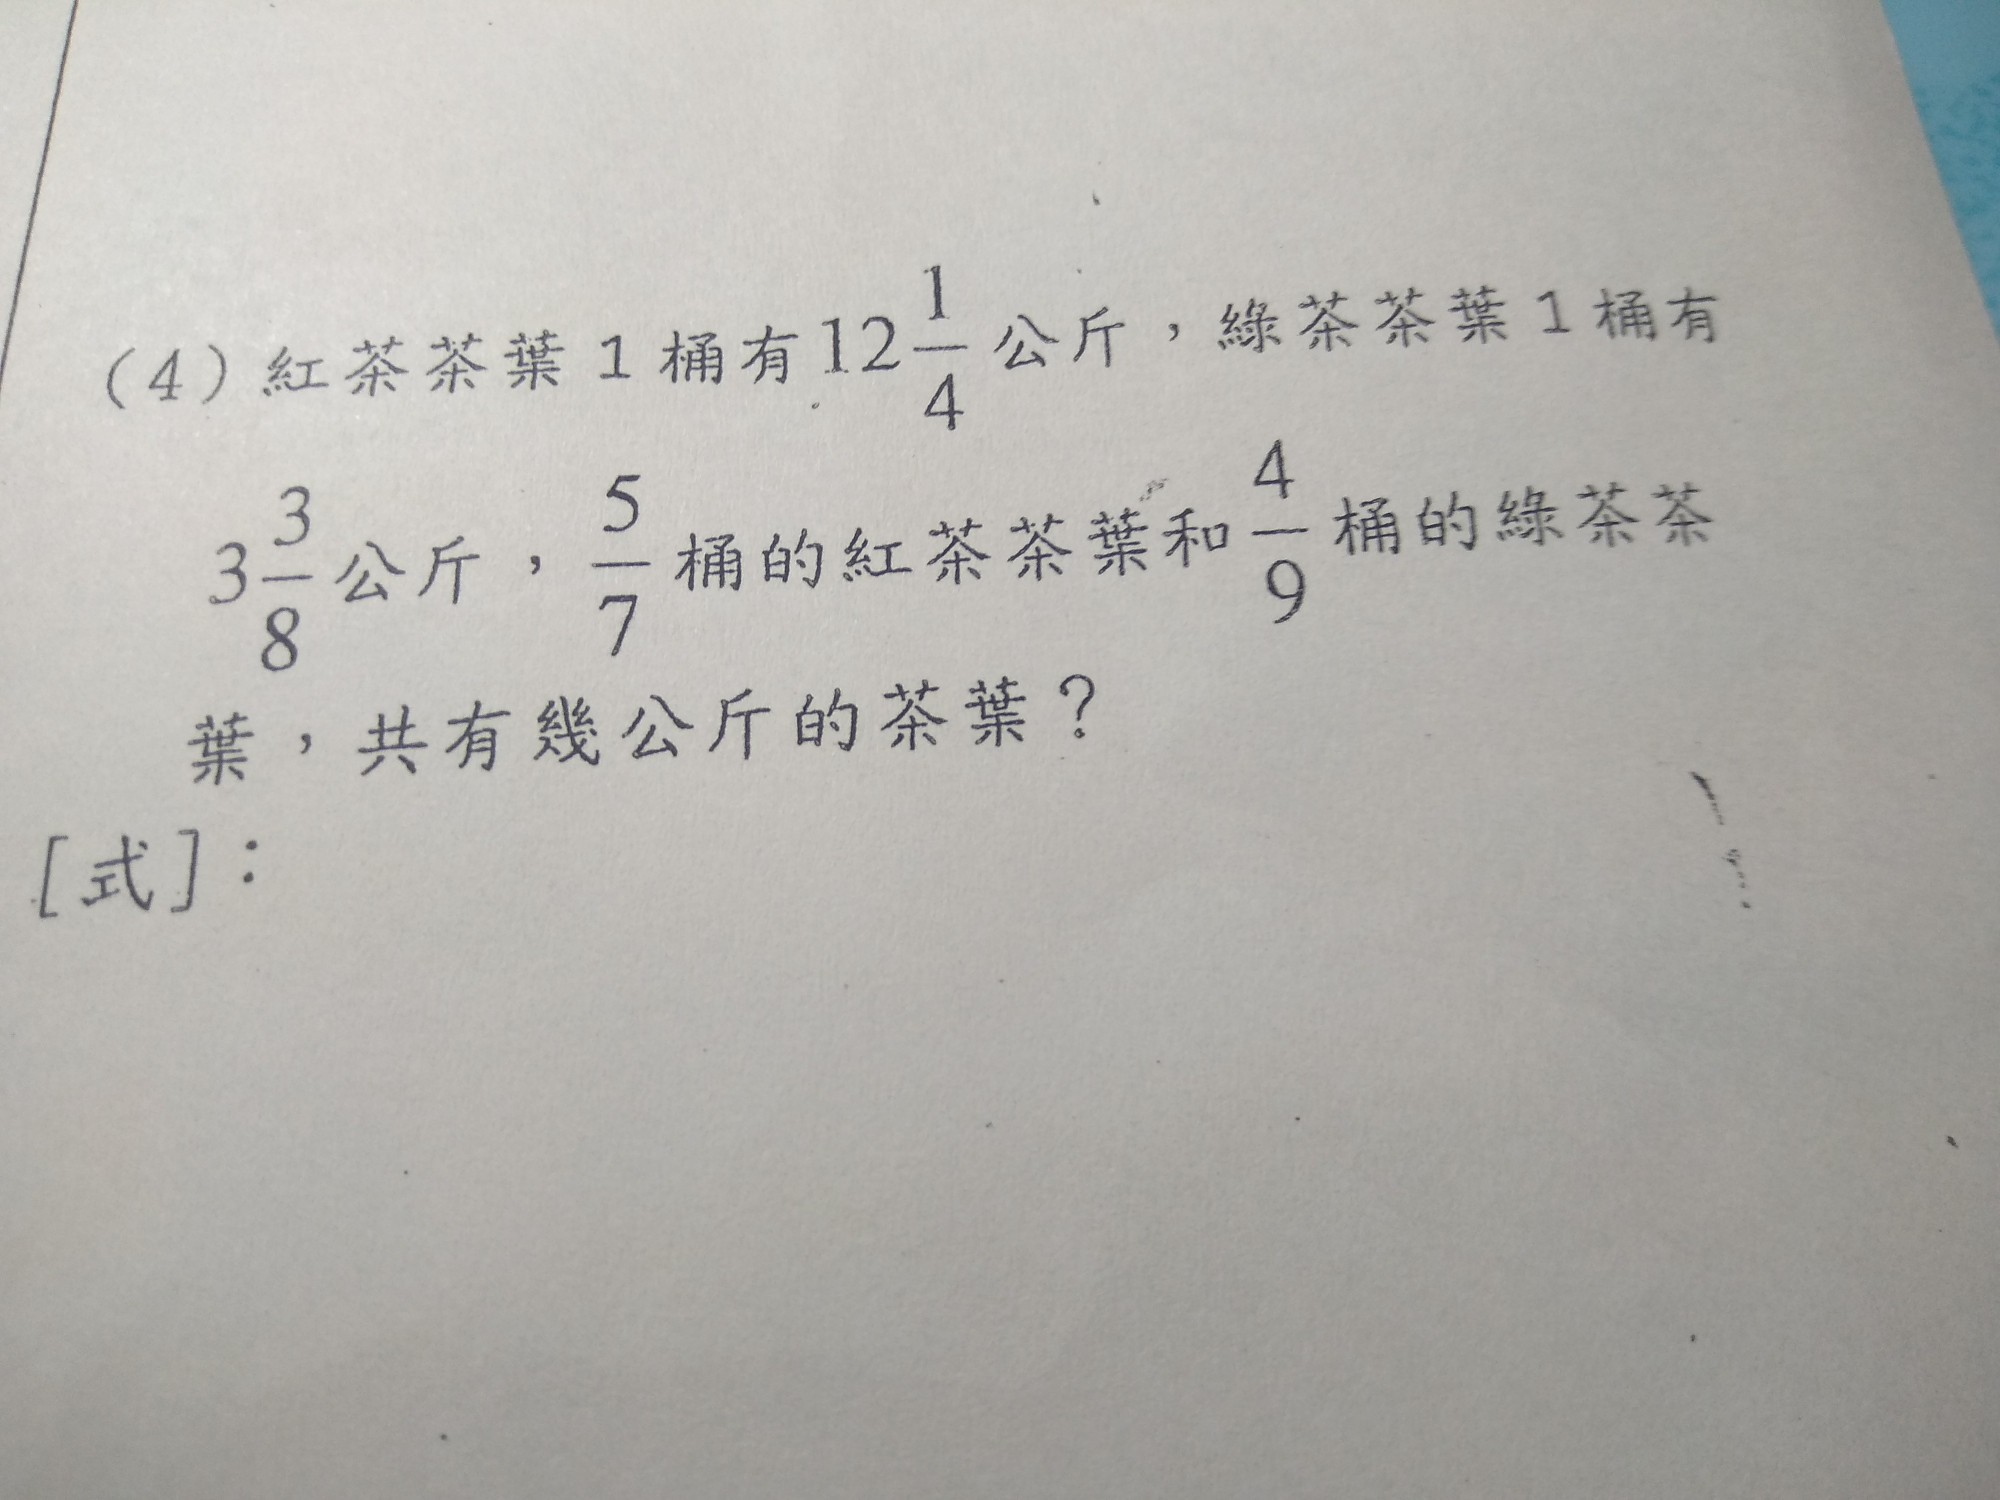 (4)紅茶茶葉1桶有12 1/4 公斤，綠茶茶葉1桶有
3 3/8 公斤，5/7 桶的紅茶茶葉和 4/9 桶的綠茶茶
葉，共有幾公斤的茶葉？
[式]：